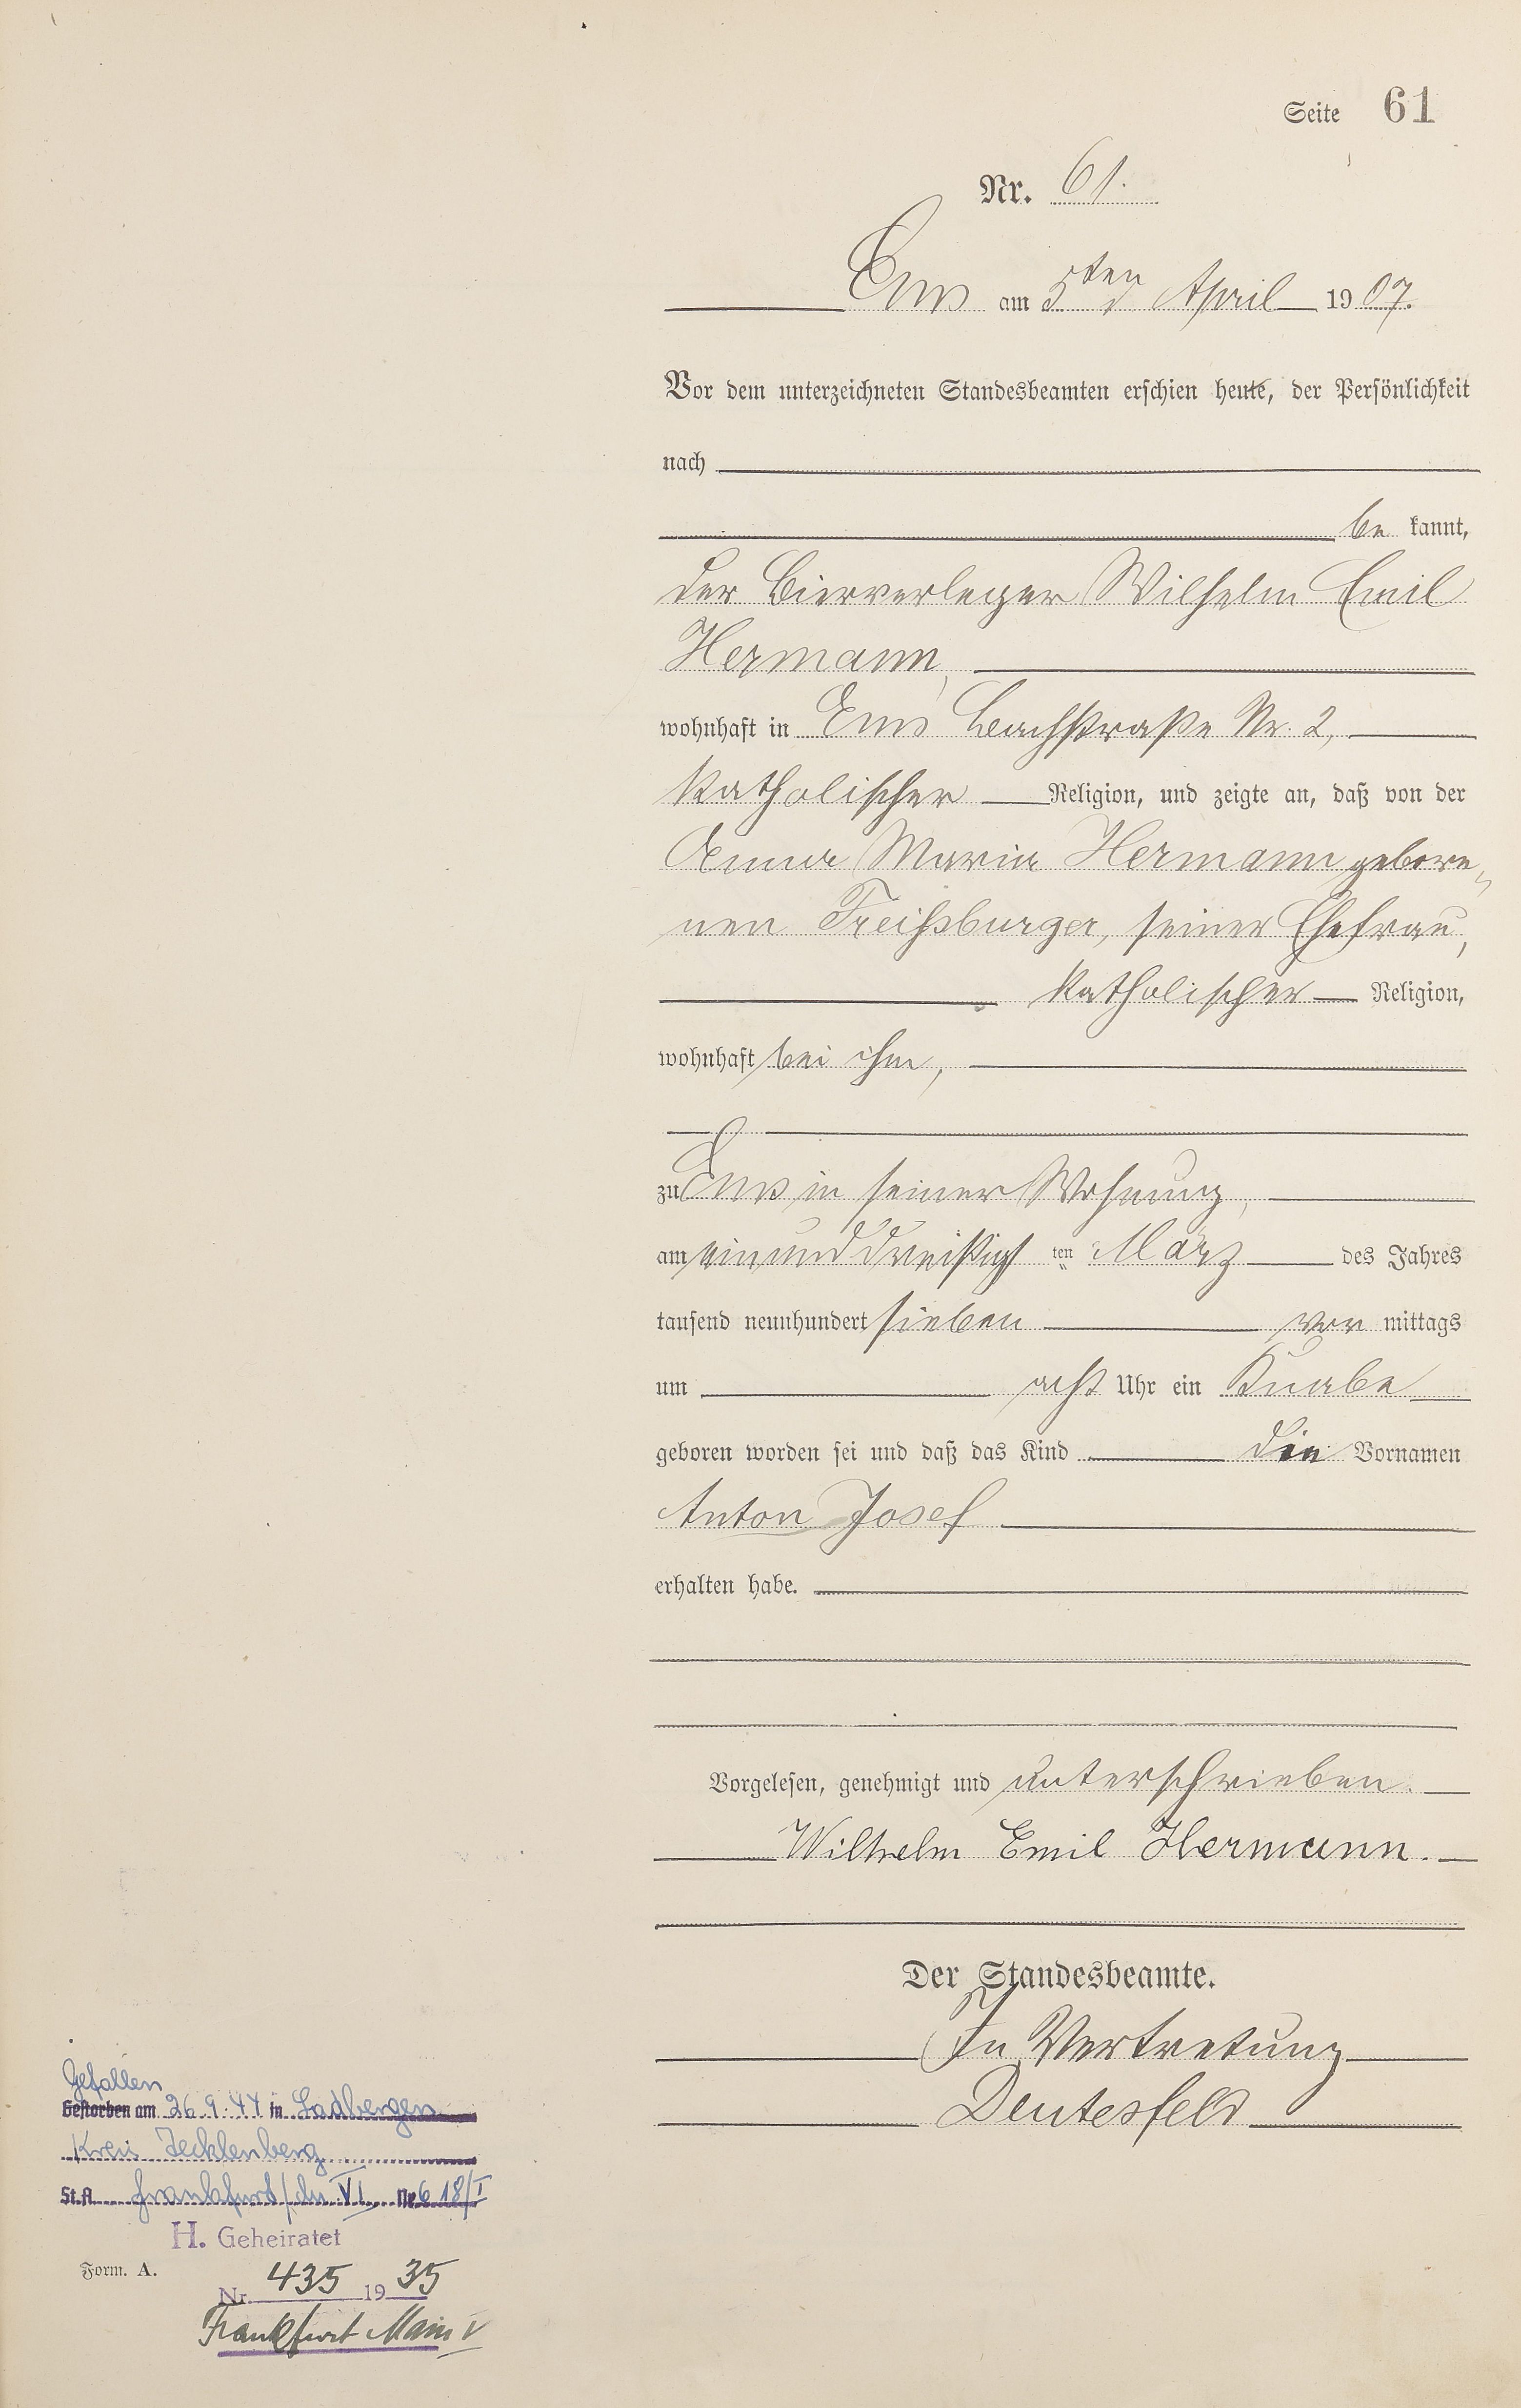 Seite 61
Nr. 61.
Ems am 5ten April 1907.
Vor dem unterzeichneten Standesbeamten erschien heute, der Persönlichkeit
nach
be kannt,
der Bierverleger Wilhelm Emil
Hermann,
wohnhaft in Ems Bachstraße Nr. 2,
katholischer Religion, und zeigte an, daß von der
Anna Maria Hermann gebore„
nen Freihsburger, seiner Ehefrau,
katholischer Religion,
wohnhaft bei ihm,
zu Ems in seiner Wohnung,
am einunddreißigsten März des Jahres
tausend neunhundert sieben vor mittags
um acht Uhr ein Knabe
geboren worden sei und daß das Kind die Vornamen
Anton Josef
erhalten habe.
Vorgelesen, genehmigt und unterschrieben.
Wilhelm Emil Hermann.
Der Standesbeamte.
In Vertretung
Deutesfeld
Gefallen
Gestorben am 26.9.44 in Ladbergen
Kreis Tecklenberg
St.A. Frankfurt/M VI Nr 618/I
H. Geheiratet
Form. A.
Nr. 435 1935
Frankfurt Main V